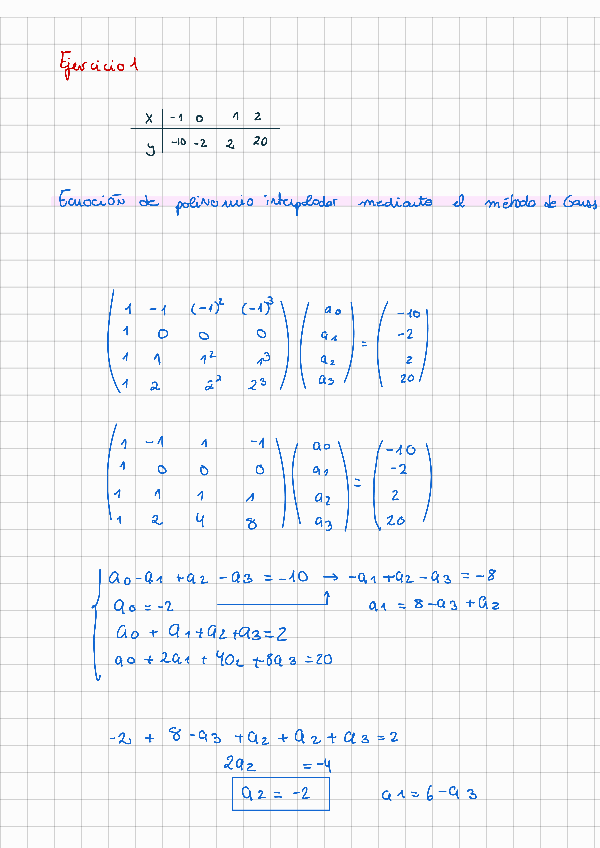 Ejercicio 1
x | -1 0 1 2
y | -10 -2 2 20
Ecuación de polinomio interpolador mediante el método de Gauss
( 1 -1 (-1)² (-1)³ ) ( a0 ) ( -10 )
( 1 0 0 0 ) ( a1 ) = ( -2 )
( 1 1 1² 1³ ) ( a2 ) ( 2 )
( 1 2 2² 2³ ) ( a3 ) ( 20 )
( 1 -1 1 -1 ) ( a0 ) ( -10 )
( 1 0 0 0 ) ( a1 ) = ( -2 )
( 1 1 1 1 ) ( a2 ) ( 2 )
( 1 2 4 8 ) ( a3 ) ( 20 )
a0 - a1 + a2 - a3 = -10 → -a1 + a2 - a3 = -8
a0 = -2 a1 = 8 - a3 + a2
a0 + a1 + a2 + a3 = 2
a0 + 2a1 + 4a2 + 8a3 = 20
-2 + 8 - a3 + a2 + a2 + a3 = 2
2a2 = -4
a2 = -2 a1 = 6 - a3